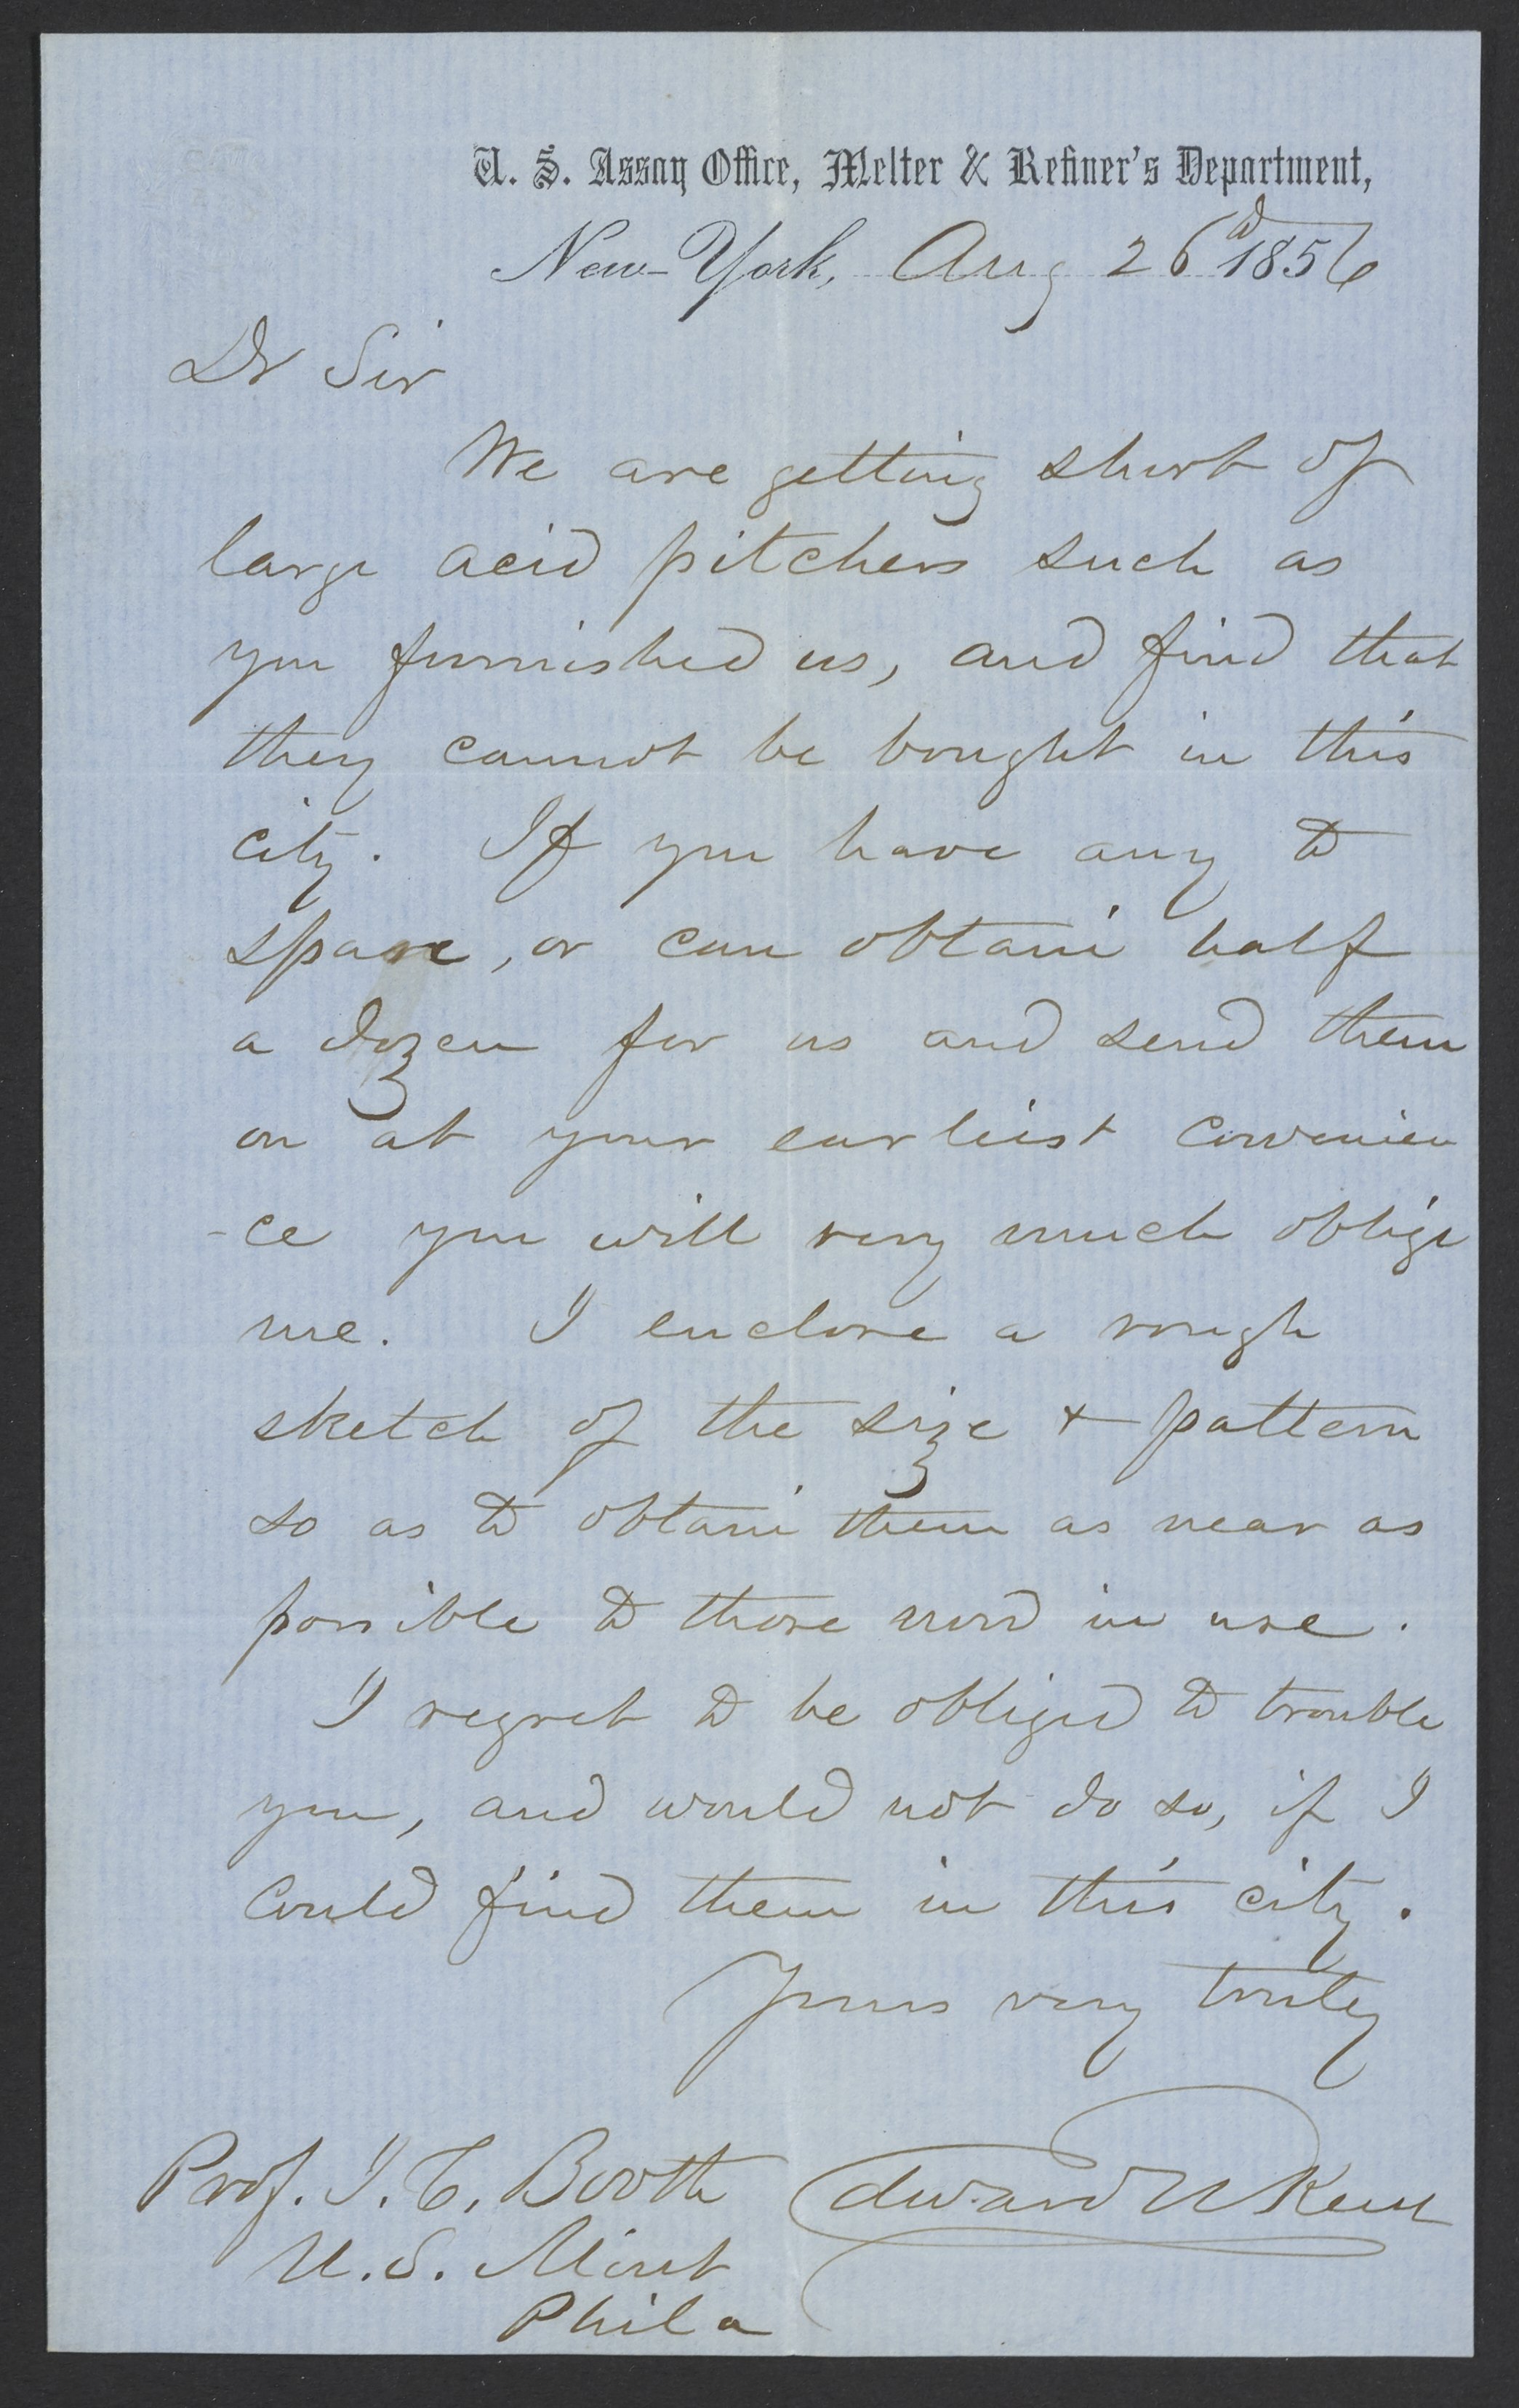 U. S. Assay Office, Melter & Refiner's Department,
New-York, Aug 26th 1856
Dr Sir
We are getting short of
large acid pitchers such as
you furnished us, and find that
they cannot be bought in this
city. If you have any to
spare, or can obtain half
a dozen for us and send them
on at your earliest convenien
-ce you will very much oblige
me. I enclose a rough
sketch of the size + pattern
so as to obtain them as near as
possible to those now in use.
I regret to be obliged to trouble
you, and would not do so, if I
could find them in this city.
Yours very truly
Prof. J. C. Booth Edward N Kent
U. S. Mint
Phila